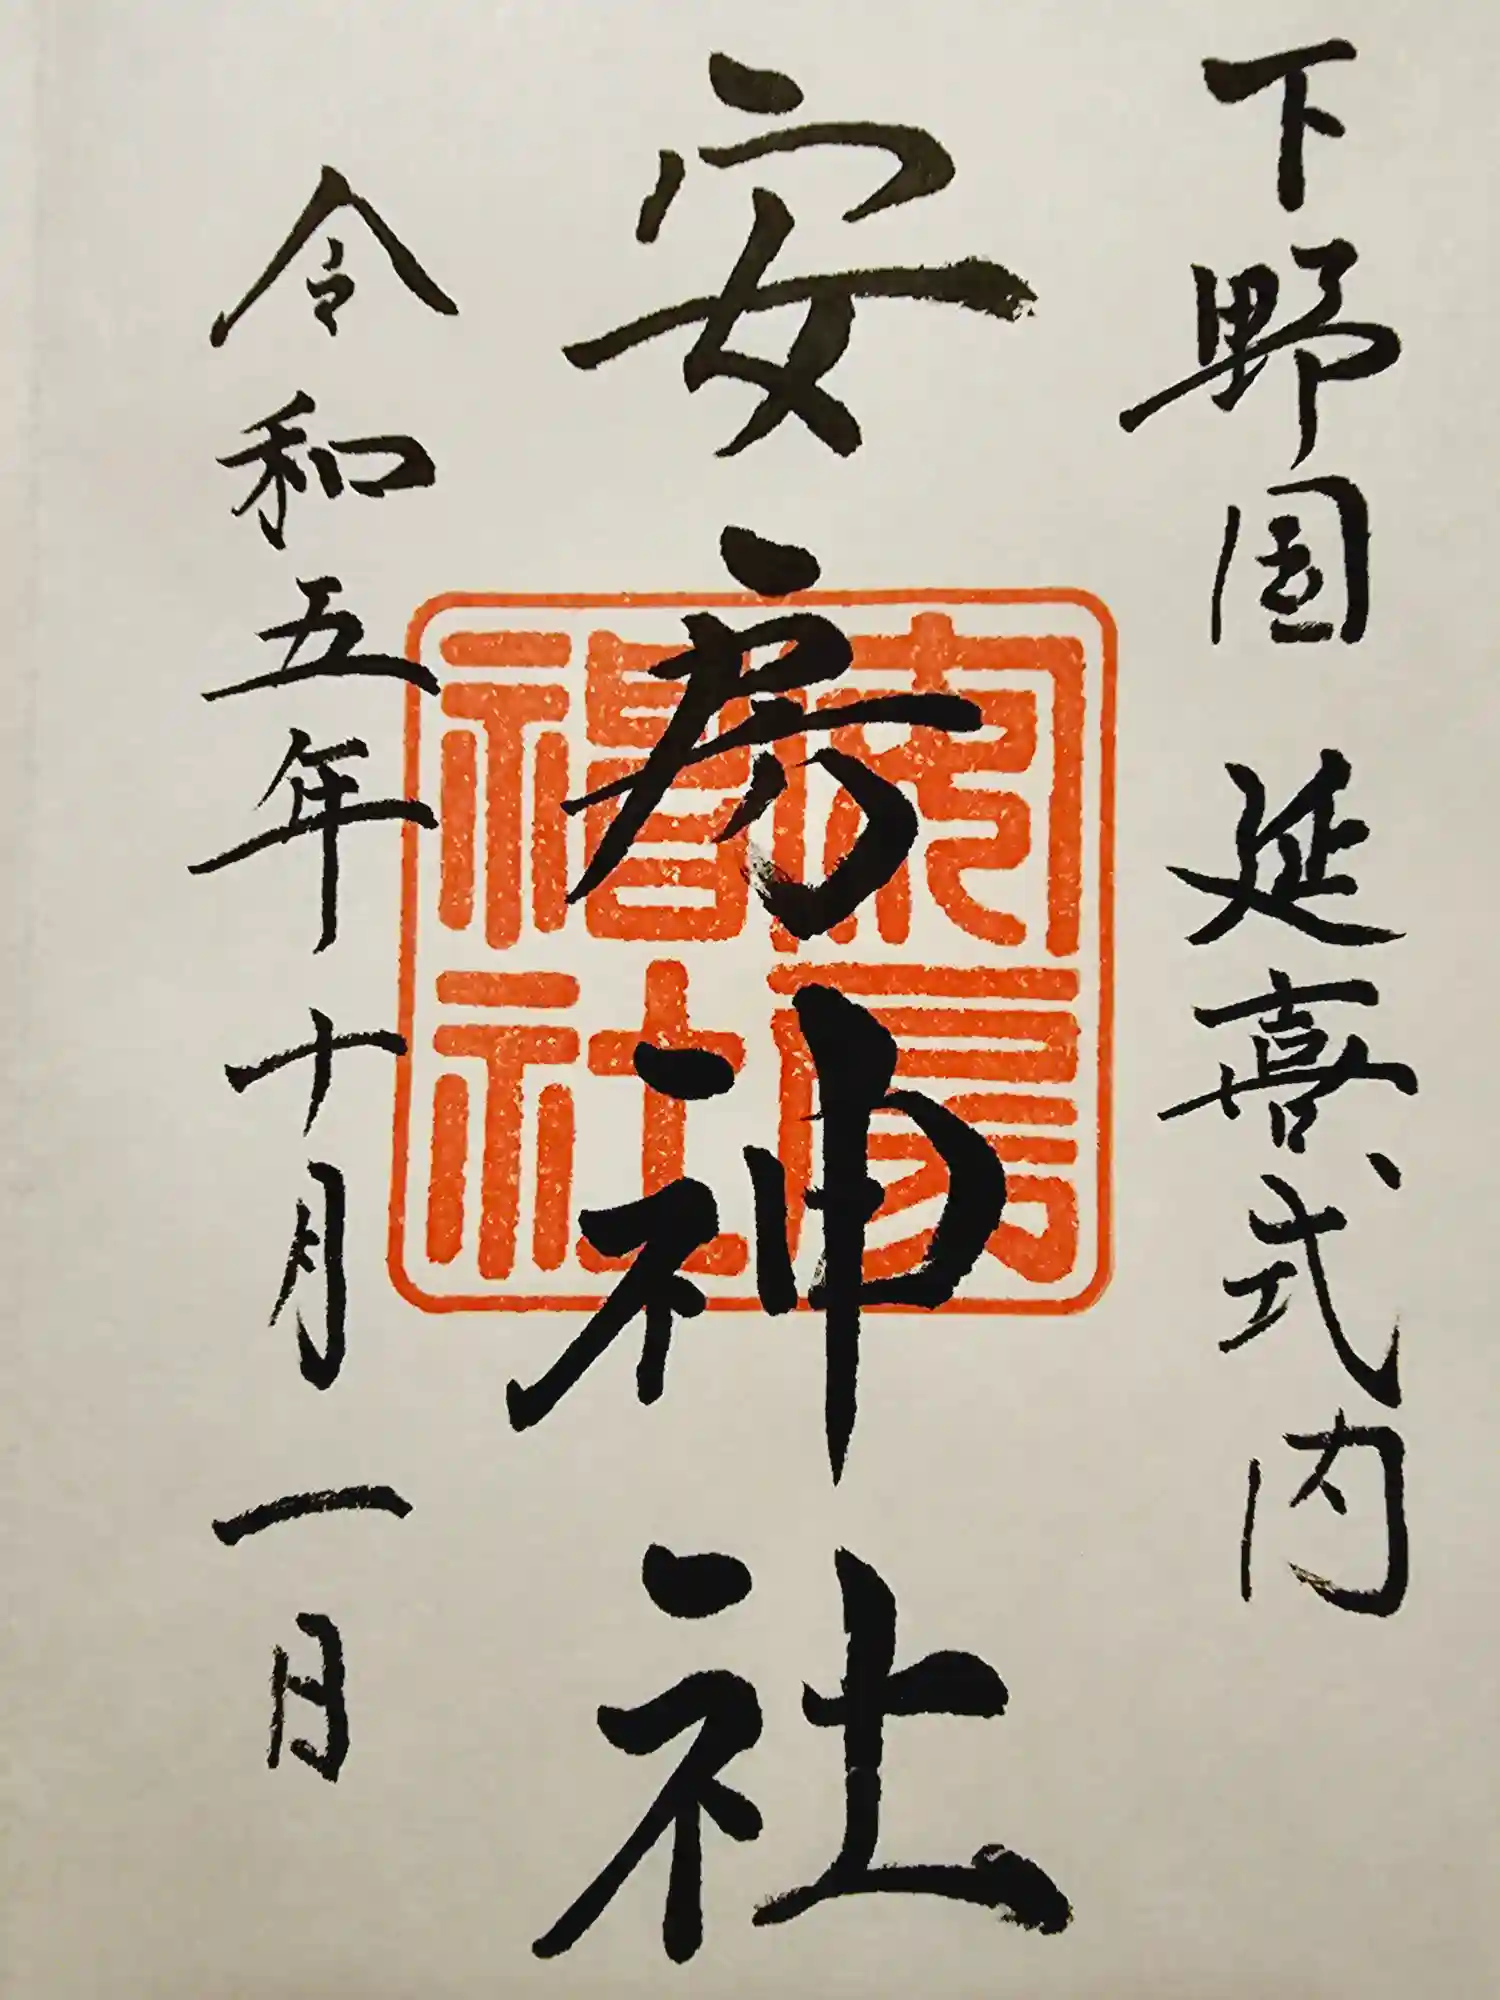 下野国 延喜式内
安房神社
令和五年十月一日
安房神社